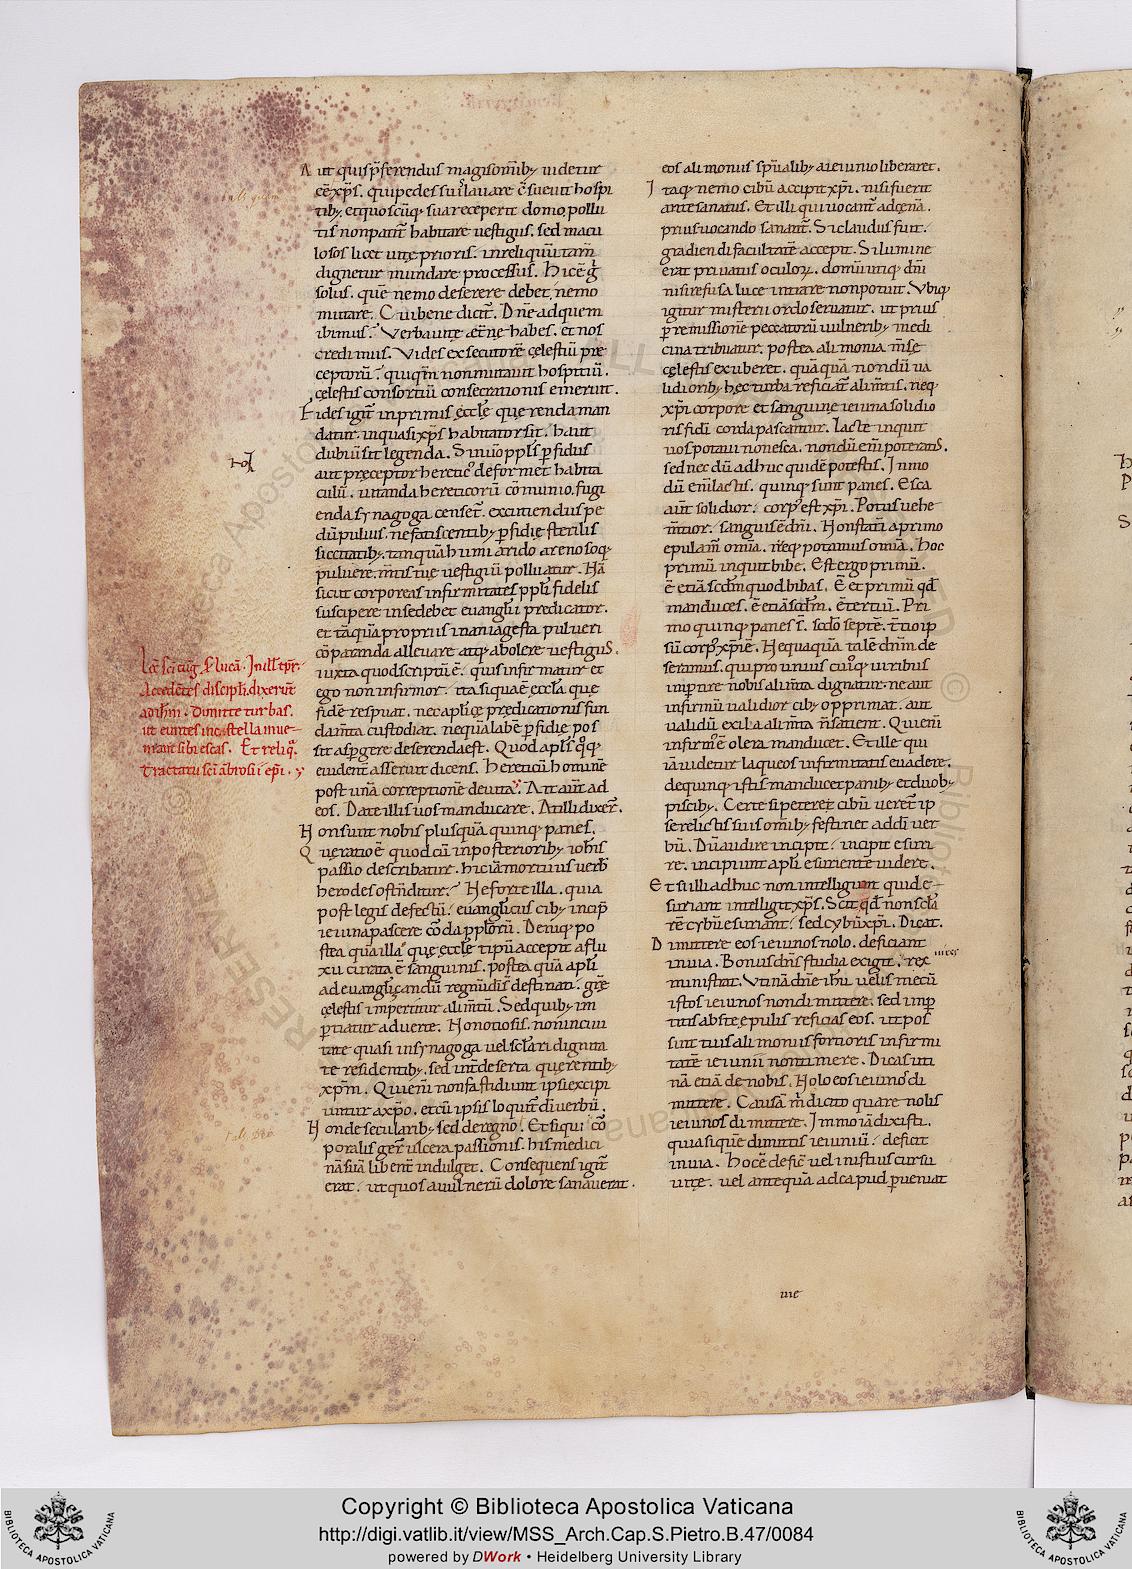 Aut quis p̄ferendus magis om̄ib; uidetur
cē xp̄s. qui pedes suis lauare c̄sueuit hospi
tib; et quoscūq; sua receperit domo pollu
tis non patit̄ habitare uestigiis. sed macu
losos licet uitę prioris. in reliquū tam̄
dignetur mundare processus. Hic ē ḡ
solus. quē nemo deserere debet. nemo
mutare. Cui bene dicit̄. Dn̄e ad quem
ibimus? Verba uitę ęt̄nę habes. et nos
credimus. Vides exsecutorē cęlestiū pre
ceptorū? qui qm̄ non mutauit hospitiū.
cęlestis consortiū consecrationis emeruit.
Fides igit̄ in primis ęcclę querenda man
datur. in qua si xp̄s habitator sit. haut
dubiū sit legenda. Sin uo ppl̄s p̄fidus
aut pręceptor heretic᾽ deformet habita
culū. uitanda hereticorū cōmunio. fugi
enda synagoga censet̄. excutiendus pe
dū puluis. ne fatiscentib; p̄fidię sterilis
siccitatib; tanquā humi arido arenosoq;
puluere. m̄tis tuę uestigiū polluatur. Nā
sicut corporeas infirmitates ppl̄i fidelis
suscipere in se debet euangl̄ii predicator.
et tāquā propriis inania gesta pulueri
cōparanda alleuare atq; abolere uestigiis.
iuxta quod scriptū ē. quis infirmatur et
ego non infirmor. ita si qua ē eccl̄a que
fidē respuat. nec apl̄icę predicationis fun
dam̄ta custodiat. ne quā labē p̄fidię pos
sit asp̄gere deserenda est. Quod apl̄s q᾽q;
euident̄ asseruit dicens. Hereticū hominē
post unā correptionē deuita. Ait aut̄ ad
eos. Date illis uos manducare. At illi dixer̄.
Non sunt nobis plus quā quinq; panes.
Quę ratio ē quod cū in posteriorib; iohis
passio describatur. hic iā mortuus uerb̄
herodes ostn̄ditur? Ne forte illa. quia
post legis defectū. euangl̄icus cib; incip̄
ieiuna pascere corda pplorū. Deniq; po
stea quā illa quę ęccl̄ę tipū accepit a flu
xu curata ē sanguinis. postea quā apl̄i
ad euangl̄izandū regnū dī s̄ destinati. gr̄ę
cęlestis imp̄titur alim̄tū. Sed quib; im
p̄tiatur aduerte. Non otiosis. non in ciui
tate quasi in synagoga uel sc̄lari dignita
te residentib; sed int̄ deserta querentib;
xp̄m. Qui eni non fastidiunt ipsi excipi
untur a xp̄o. et cū ipsis loquit̄ dī uerbū.
Non de secularib; sed de regno. Et si qui cō
poralis ger̄ ulcera passionis. his medici
nā suā libent̄ indulget. Consequens igit̄
erat. ut quos a uulnerū dolore sanauerat.
Lc̄ sc̄i eug̅. s̄ lucā. In illt̄ēpr̄.
Accedētes discipli dixerūt
ad ih̄m. Dimitte turbas.
ut euntes in castella inue-
niant sibi escas. Et reliq̄.
Tractatu sc̄i ābrosii ep̄i.
eos alimoniis sp̄ualib; a ieiunio liberaret.
Itaq; nemo cibū accipit xp̄i. nisi fuerit
ante sanatus. Et illi qui uocant̄ ad cęnā.
prius uocando sanant̄. Si claudus fuit.
gradiendi facultatē accepit. Si lumine
erat priuatus oculoꝝ. domū utiq; dn̄i
nisi refusa luce intrare non potuit. Vbiq;
igitur misterii ordo seruatur. ut prius
p̄ remissionē peccatorū uulnerib; medi
cina tribuatur. postea alimonia m̄sę
cęlestis exuberet. quā quā nondū ua
lidiorib; hęc turba reficiat̄ alim̄tis. neq;
xp̄i corpore et sanguine ieiuna solidio
ris fidī corda pascantur. Lacte inquit
uos potaui non esca. nondū enī poteratis.
sed nec dū adhuc quidē potestis. In mo
dū enī lactis. quinq; sunt panes. Esca
aut̄ solidior. corp᾽ est xp̄i. Potus uehe
m̄tior. sanguis ē dn̄i. Non stati a primo
epulam̄ omia. neq; potamus omīa. Hoc
primū inquit bibe. Est ergo primū.
ē etiā scd̄m quod bibas. Ē et primū qd̄
manduces. ē etiā scd̄m. ē tertiū. Pri
mo quinq; panes s̄. scdo septē. t̄tio ip
sū corp᾽ xp̄i ē. Nequaquā talē dnm̄ de
seramus. qui pro uniuscui᾽q; uiribus
imp̄tire nobis alim̄ta dignatur. ne aut
infirmū ualidior cib; opprimat. aut
ualidū exilia alim̄ta n̄ satient. Qui enī
infirm᾽ ē olera manducet. Et ille qui
iā uidetur laqueos infirmitatis euadere.
de quinq; istis manducet panib; et duob;
piscib;. Certe si petere cibū ueret̄ ip
se relictis suis omib; festinet ad dī uer
bū. Dū audire incipit. incipit esuri
re. incipiunt apl̄i esurientē uidere.
Et si illi adhuc non intelligunt quid e-
suriant intelligit xp̄s. Scit qd̄ non sclā
rē cybū esuriant. sed cybū xp̄i. Dicat.
Dimittere eos ieiunos nolo. deficiant
in uia. Bonus dn̄s studia exigit. uires
ministrat. Vtinā dn̄e ihu uelis mecū
istos ieiunos non dimittere. sed imp̄
titis abs te epulis reficias eos. ut pos
sint tuis alimoniis fortioris infirmi
tatē ieiunii non timere. Dicas uti
nā etiā de nobis. Nolo eos ieiunos di
mittere. Causā m̄ dicito quare nolis
ieiunos dimittere. Immo iā dixisti.
quia si quē dimittis ieiunū. deficit
in uia. Hoc ē deficit uel in istius cursu
uitę. uel antequā ad capud p̄ueniat
Copyright © Biblioteca Apostolica Vaticana
http://digi.vatlib.it/view/MSS_Arch.Cap.S.Pietro.B.47/0084
powered by DWork • Heidelberg University Library